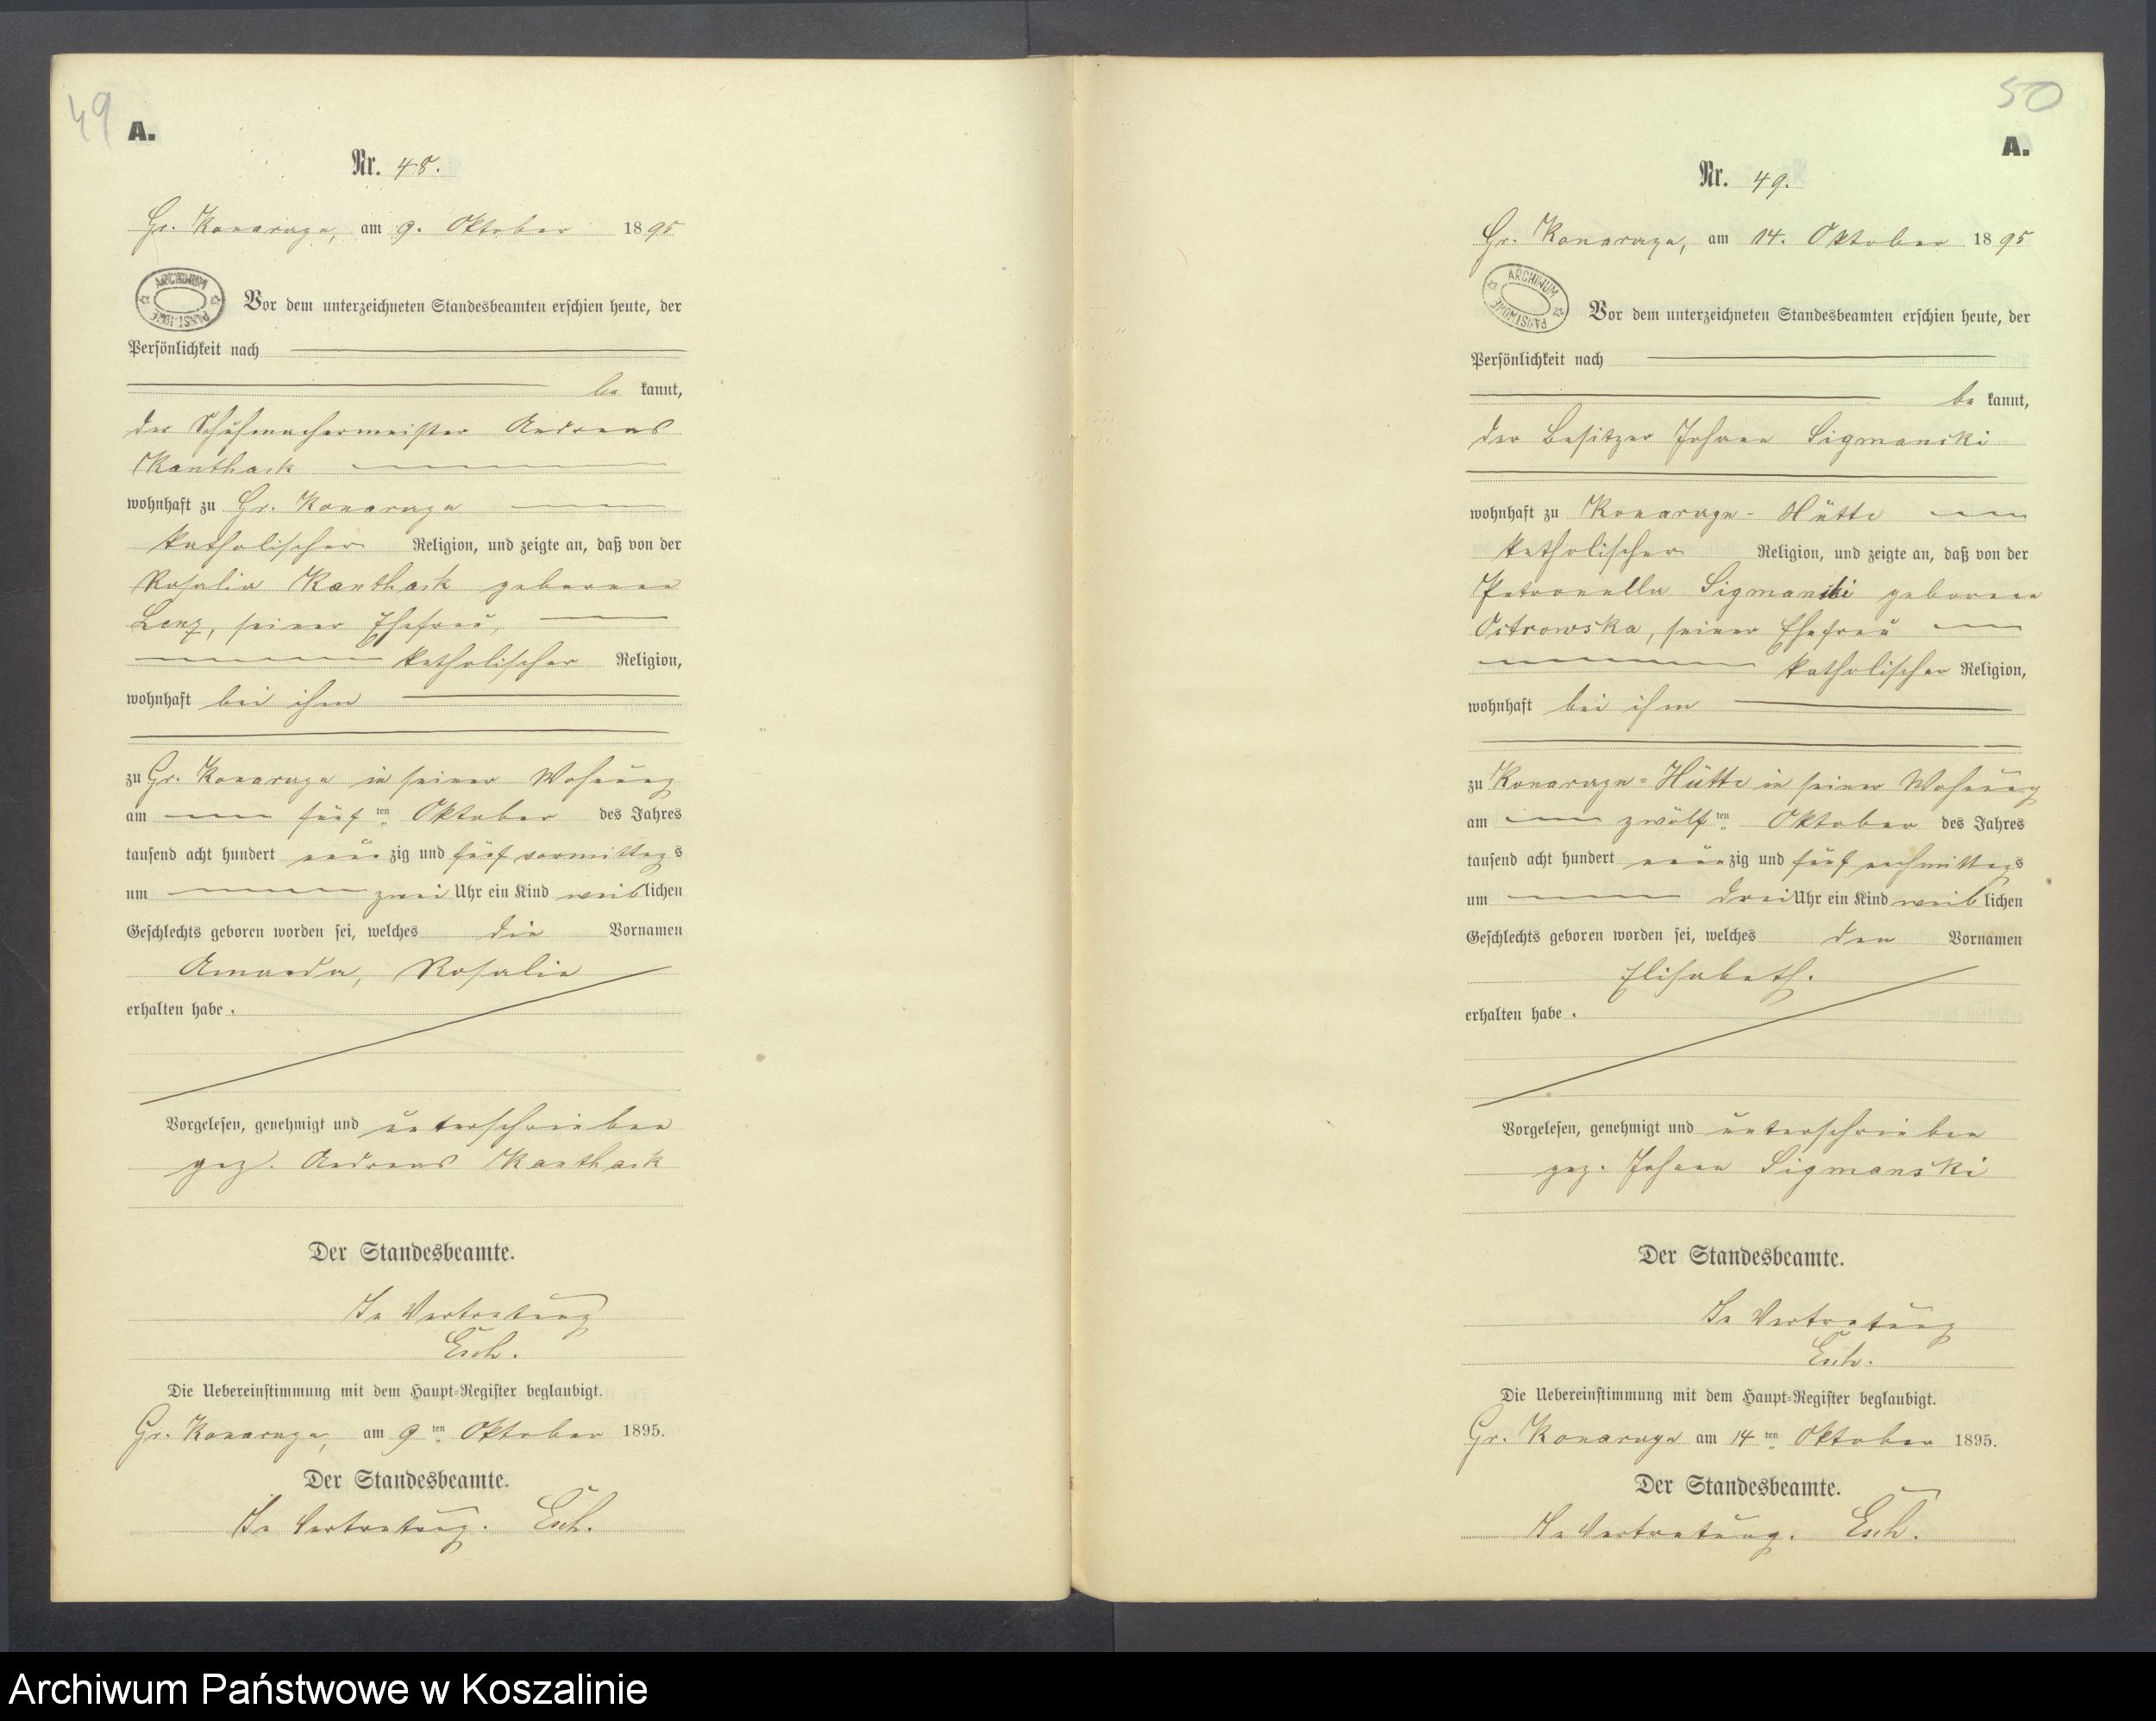 49
A.
Nr. 48.
Gr. Konarzyn, am 9. Oktober 1895
ARCHIWUM PAŃSTWOWE
Vor dem unterzeichneten Standesbeamten erschien heute, der
Persönlichkeit nach
be kannt,
der Schuhmachermeister Andreas
Kanthack
wohnhaft zu Gr. Konarzyn
katholischer Religion, und zeigte an, daß von der
Rosalia Kanthack geborenen
Lenz, seiner Ehefrau,
katholischer Religion,
wohnhaft bei ihm
zu Gr. Konarzyn in seiner Wohnung
am fünf ten Oktober des Jahres
tausend acht hundert neun zig und fünf vormittag s
um zwei Uhr ein Kind weiblichen
Geschlechts geboren worden sei, welches die Vornamen
Amanda, Rosalie
erhalten habe.
Vorgelesen, genehmigt und unterschrieben
gez. Andreas Kanthack
Der Standesbeamte.
In Vertretung
Esch.
Die Uebereinstimmung mit dem Haupt-Register beglaubigt.
Gr. Konarzyn, am 9 ten Oktober 1895.
Der Standesbeamte.
In Vertretung. Esch.
50
A.
Nr. 49.
Gr. Konarzyn, am 14. Oktober 1895
ARCHIWUM PAŃSTWOWE
Vor dem unterzeichneten Standesbeamten erschien heute, der
Persönlichkeit nach
be kannt,
der Besitzer Johann Sigmanski
wohnhaft zu Konarzyn-Hütte
katholischer Religion, und zeigte an, daß von der
Petronella Sigmanski geborenen
Ostrowska, seiner Ehefrau
katholischer Religion,
wohnhaft bei ihm
zu Konarzyn-Hütte in seiner Wohnung
am zwölf ten Oktober des Jahres
tausend acht hundert neunzig und fünf nachmittags
um drei Uhr ein Kind weiblichen
Geschlechts geboren worden sei, welches den Vornamen
Elisabeth.
erhalten habe.
Vorgelesen, genehmigt und unterschrieben
gez. Johann Sigmanski
Der Standesbeamte.
In Vertretung
Esch.
Die Uebereinstimmung mit dem Haupt-Register beglaubigt.
Gr. Konarzyn am 14 ten Oktober 1895.
Der Standesbeamte.
In Vertretung. Esch.
Archiwum Państwowe w Koszalinie